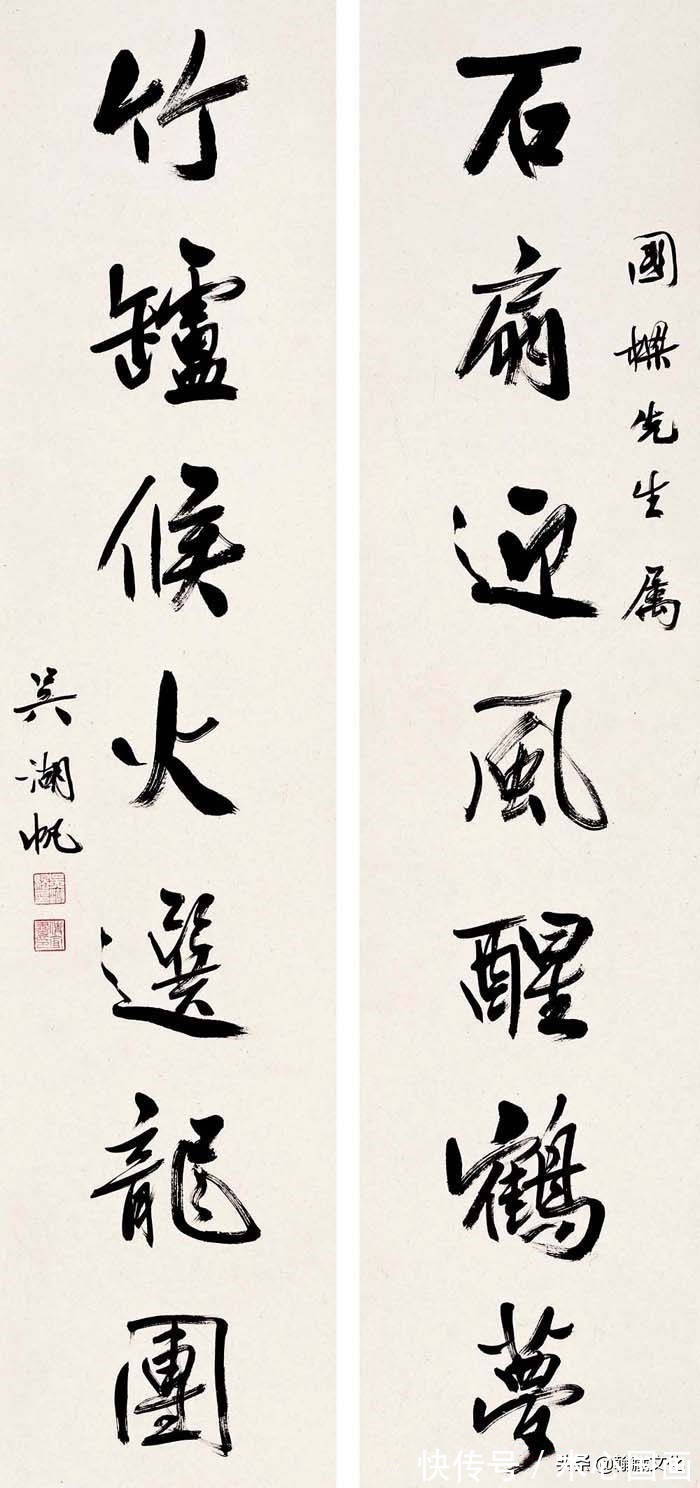 國樑先生属
石扇迎風醒鶴夢
竹罏候火選龍團
吳湖帆
快传号 /